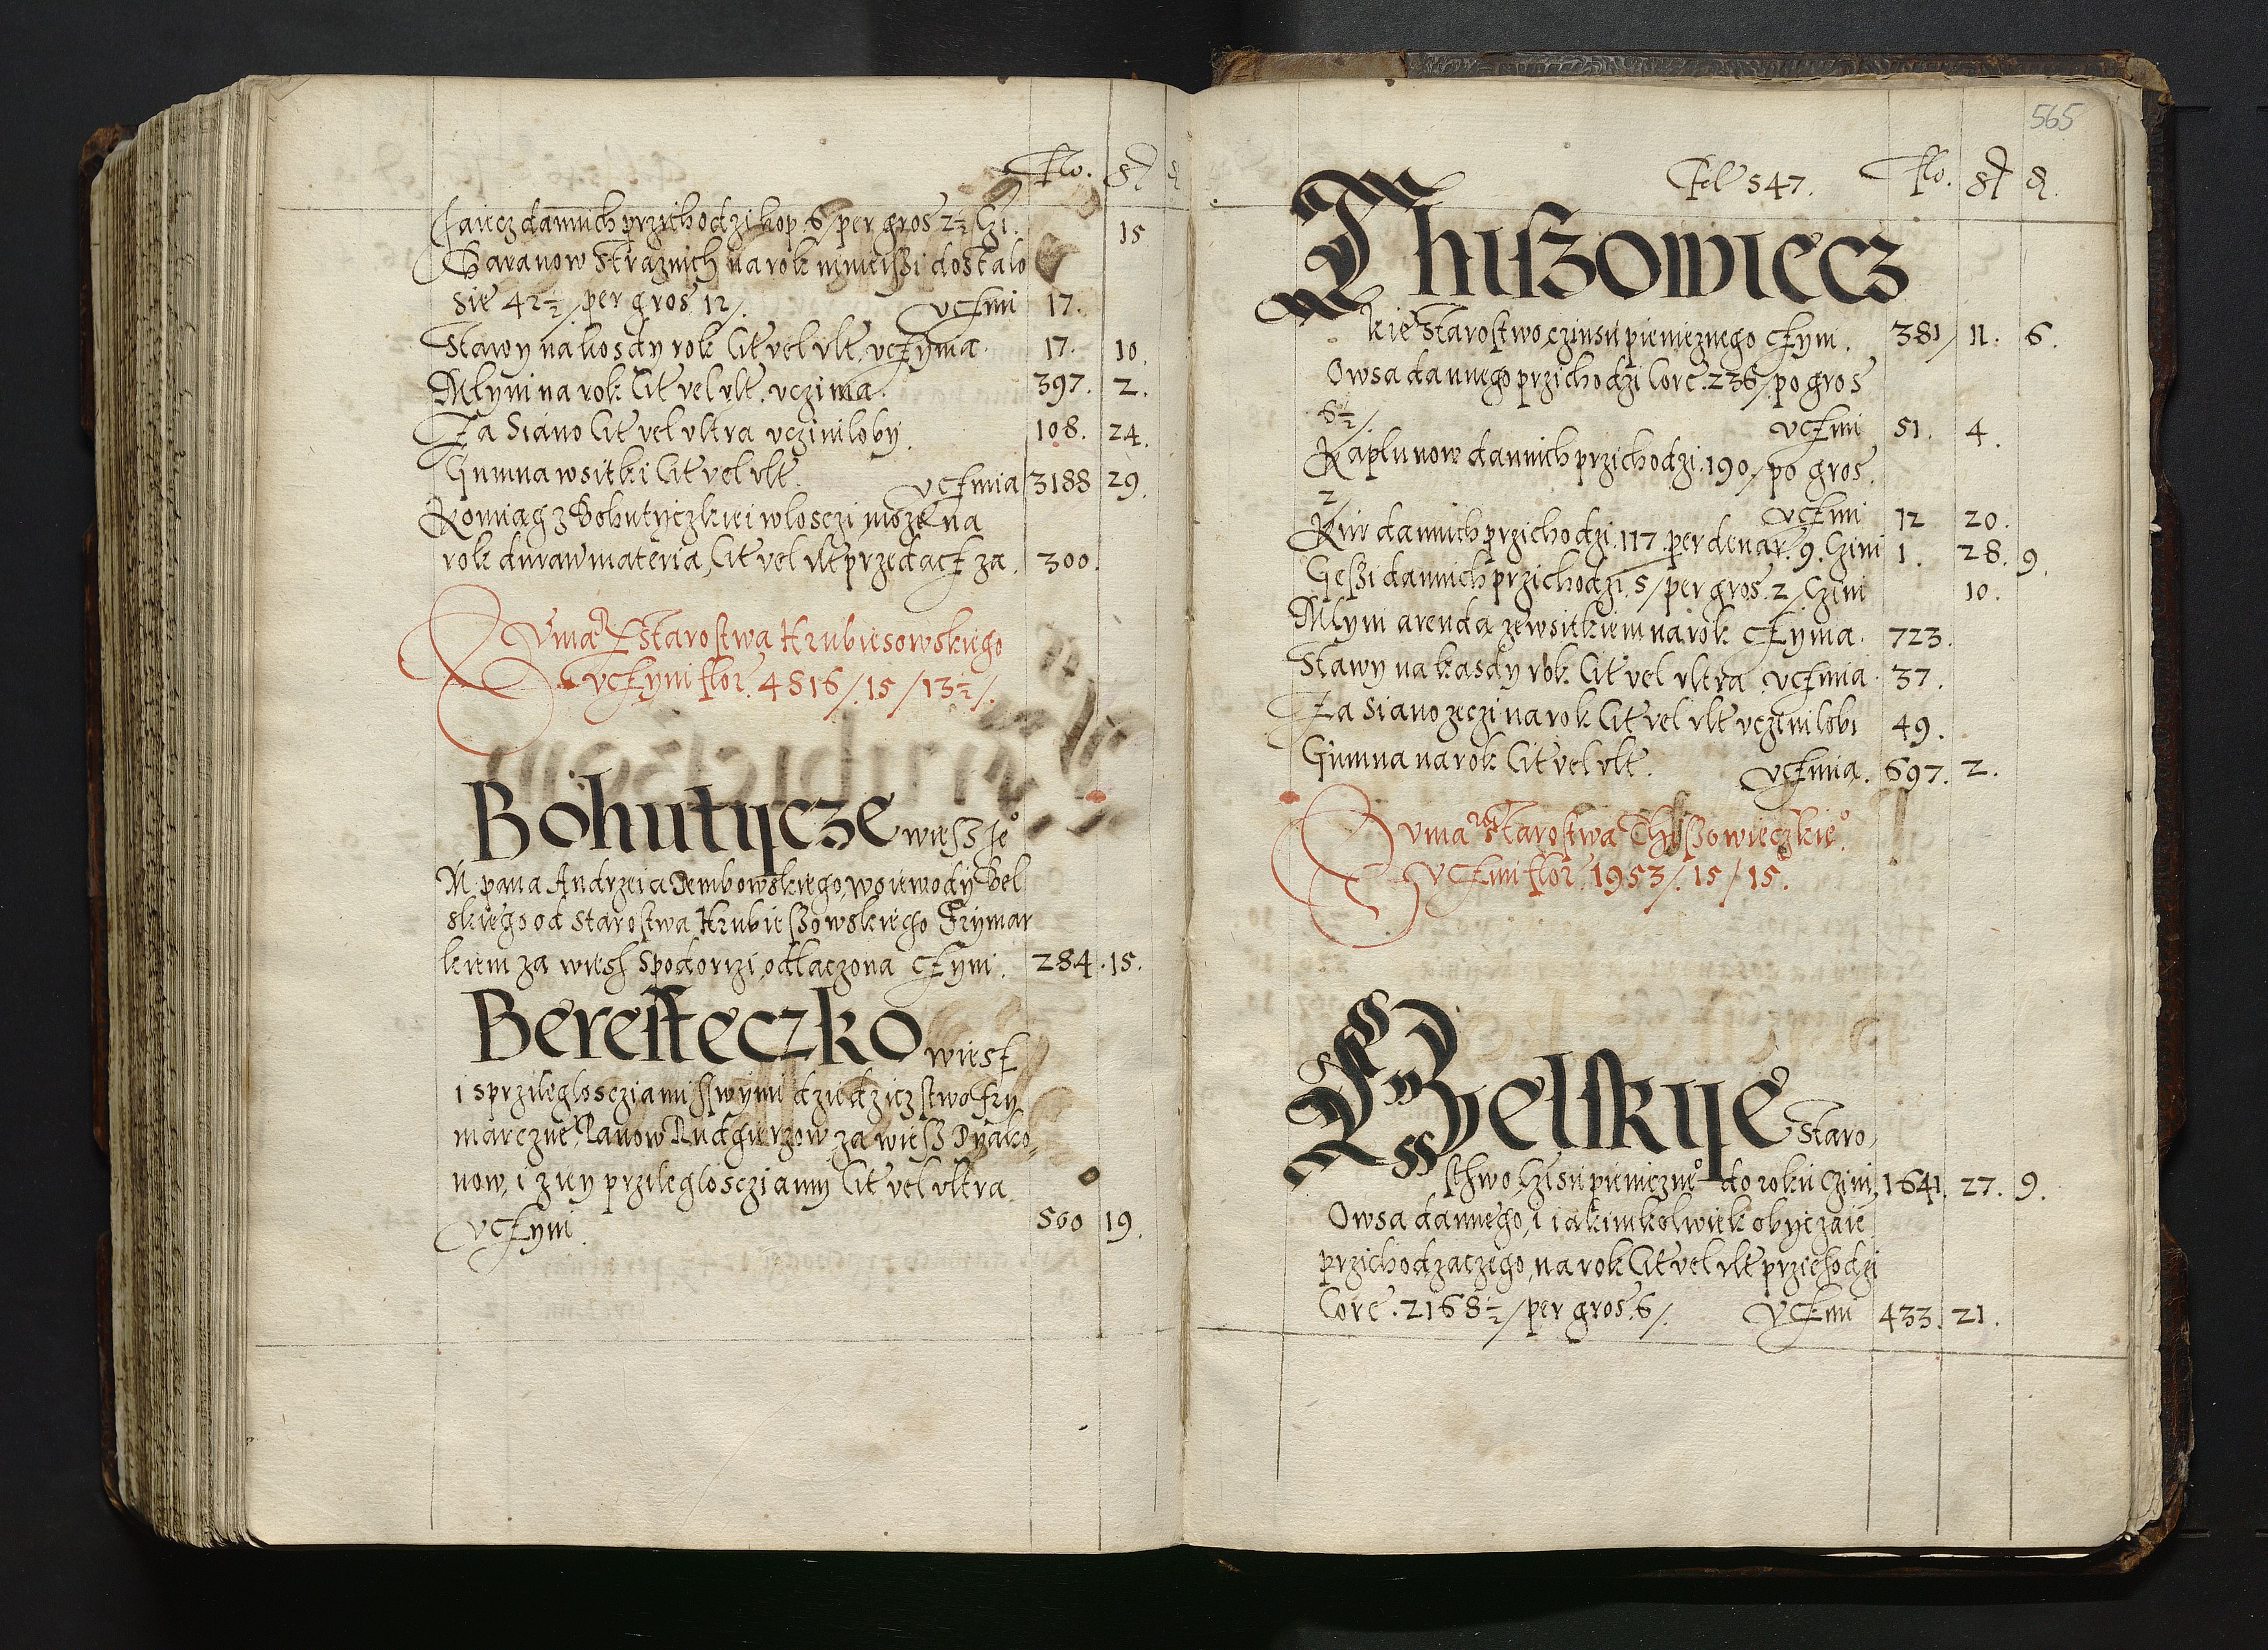 Flo. gr d
Jaiecz dannich przichodzi kop 6/ per gros 2½ Czi. 15
Baranow Straznich na rok ninieissi dostalo
sie 42½/ per gros 12/. vczini 17.
Stawy na kosdy rok lit vel vlt. vczyma. 17. 10.
Mlyni na rok lit vel vlt. vczima. 397. 2.
Za Siano lit vel vltra vcziniloby. 108. 24.
Gumna wsitki lit vel vlt. vczinia 3188 29.
Komiag z Bohutyczkiei wlosczi może na
rok duraw materia, lit vel vlt przedacz za. 300.
Suma Starostwa Hrubiesowskiego
vczyni flor. 4816/. 15/ 13½/.
Bohutycze wiess je°
M. pana Andrzeia Dembowskiego, woiewody Bel
skiego od Starostwa Hrubiessowskiego Frymar
kiem za wiesz Spodorizi odłaczona czyni. 284. 15.
Beresteczko wiesz
i sprzileglosciami swymi dziedziczstwo fry
marczne, Panow Rudgierzow za wiess Dyako,,
now, i z iey przileglosciamy lit vel vltra
vczyni. 560 19.
565
Fol 547. Flo. gr d.
Thiszowiecz
kie Starostwo, czinsu pienieznego czyni. 381/ 11. 6.
Owsa dannego przichodzi Core. 236/ po gros
6½/. vczini 51. 4.
Kaplunow dannich przichodzi. 190/ po gros.
2/ vczini 12 20.
Kur dannich przichodzi. 117. per denar. 9. Czini 1. 28. 9.
Gessi dannich przichodzi. 5/ per gros. 2/ Czini 10.
Mlyni arenda zewsitkiem na rok czyma. 723.
Stawy na kasdy rok lit vel vltra vczinia. 37.
Za Siano zeczi na rok lit vel vlt vcziniłobi 49.
Gumna na rok lit vel vlt. vczinia. 697. 2.
Suma Starostwa Thissowieczkie°.
vczini flor. 1953/. 15/ 15.
Belskye Staro
sthwo, Czisu pieniezne° do roku Czini. 1641. 27. 9.
Owsa dannego, i iakimkolwiek obyczaie
przichodzaczego, na rok lit vel vlt przichodzi
Core. 2168½/ per gros. 6/. vczini 433. 21.